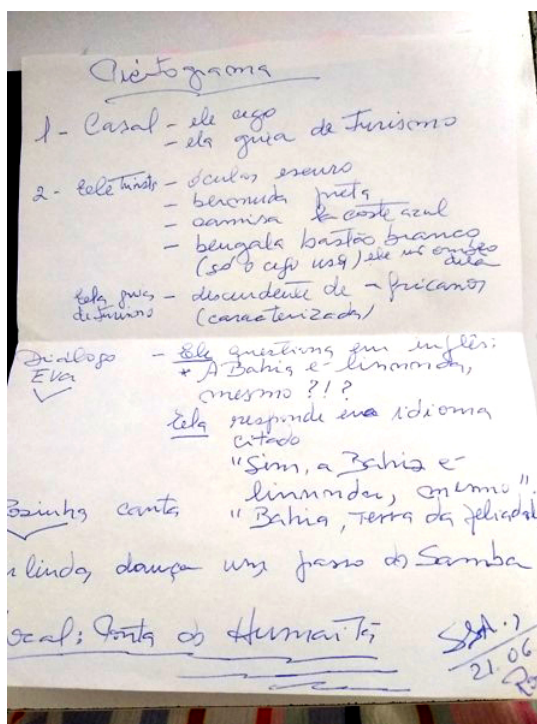 Pictograma
1 - Casal - ele cego
- ela guia de Turismo
2 - ele Turista - óculos escuro
- bermuda preta
- camisa Lacoste azul
- bengala bastão branco
(só o cego usa) ele no ombro dela
Ela guia de Turismo - descendente de africanos
(caracterizada)
Diálogo - Ele questiona em inglês:
Eva * A Bahia é linnnnda,
mesmo ?!?
Ela responde idioma
citado
"Sim, a Bahia é
linnnnda, mesmo".
Rosinha canta "Bahia, Terra da felicidade
linda, dança um passo do Samba
Local: Ponta do Humaitá
SSA.
21.06